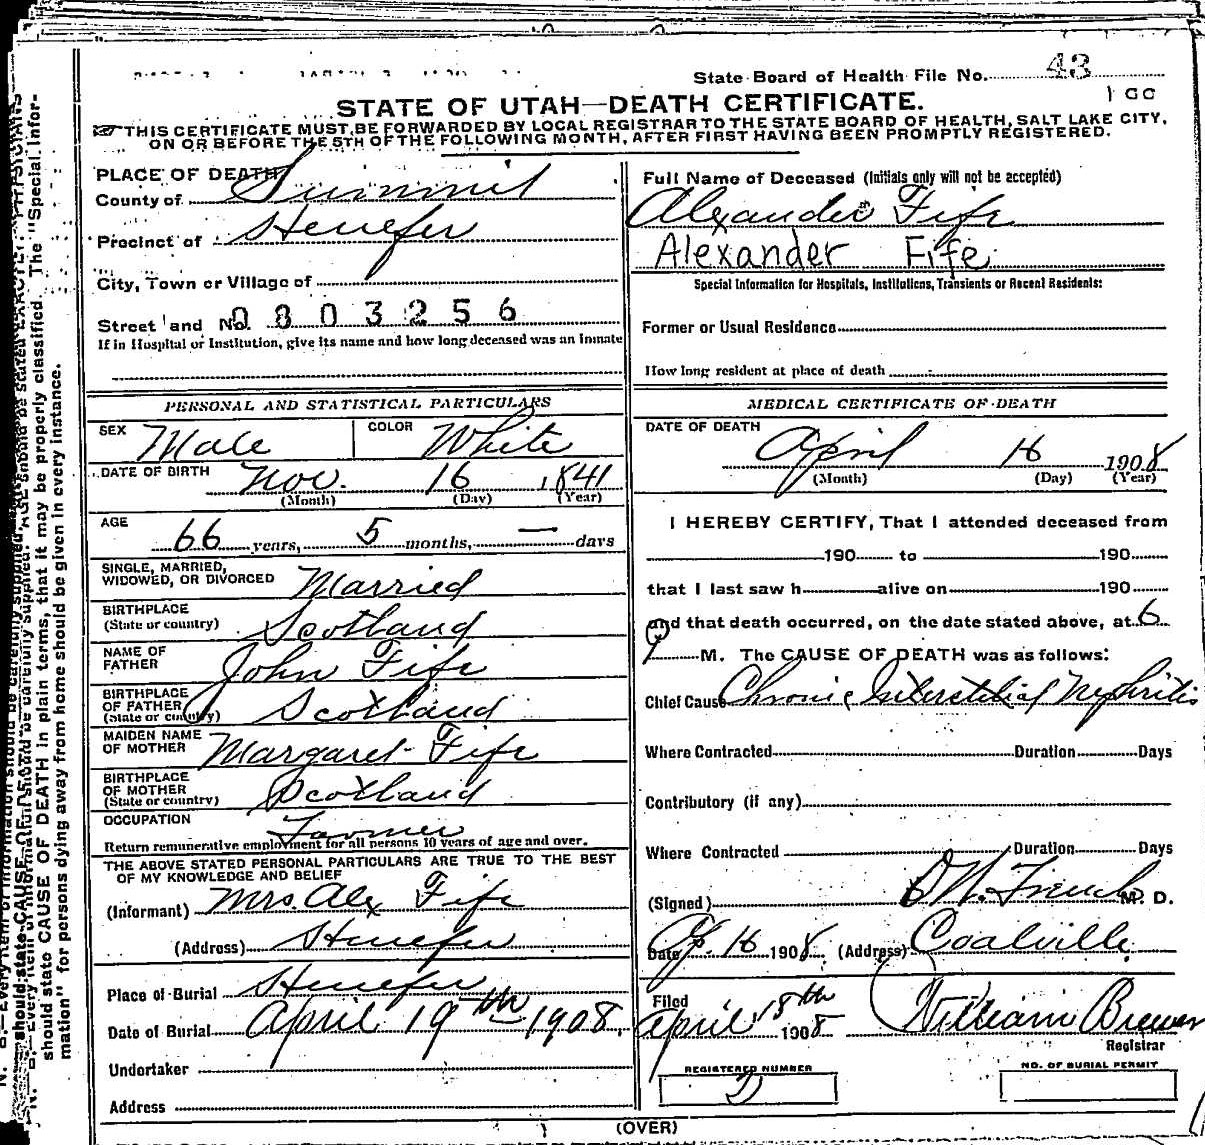 State Board of Health File No. 43
1 GC
STATE OF UTAH—DEATH CERTIFICATE.
THIS CERTIFICATE MUST BE FORWARDED BY LOCAL REGISTRAR TO THE STATE BOARD OF HEALTH, SALT LAKE CITY,
ON OR BEFORE THE 5TH OF THE FOLLOWING MONTH, AFTER FIRST HAVING BEEN PROMPTLY REGISTERED.
PLACE OF DEATH
County of Summit
Precinct of Henefer
City, Town or Village of
Street and No. 0803256
If in Hospital or Institution, give its name and how long deceased was an inmate
Full Name of Deceased (Initials only will not be accepted)
Alexander Fife
Alexander Fife
Special Information for Hospitals, Institutions, Transients or Recent Residents:
Former or Usual Residence
How long resident at place of death
PERSONAL AND STATISTICAL PARTICULARS
SEX Male COLOR White
DATE OF BIRTH Nov. 16 1841
(Month) (Day) (Year)
AGE
66 years, 5 months, — days
SINGLE, MARRIED,
WIDOWED, OR DIVORCED Married
BIRTHPLACE
(State or country) Scotland
NAME OF
FATHER John Fife
BIRTHPLACE
OF FATHER
(State or country) Scotland
MAIDEN NAME
OF MOTHER Margaret Fife
BIRTHPLACE
OF MOTHER
(State or country) Scotland
OCCUPATION Farmer
Return remunerative employment for all persons 10 years of age and over.
THE ABOVE STATED PERSONAL PARTICULARS ARE TRUE TO THE BEST
OF MY KNOWLEDGE AND BELIEF
(Informant) Mrs. Alex Fife
(Address) Henefer
Place of Burial Henefer
Date of Burial April 19th 1908
Undertaker
Address
MEDICAL CERTIFICATE OF DEATH
DATE OF DEATH
April 16 1908
(Month) (Day) (Year)
I HEREBY CERTIFY, That I attended deceased from
190 to 190
that I last saw h alive on 190
and that death occurred, on the date stated above, at 6
P M. The CAUSE OF DEATH was as follows:
Chief Cause Chronic Interstitial Nephritis
Where Contracted Duration Days
Contributory (if any)
Where Contracted Duration Days
(Signed) French M. D.
Date Ap. 16 1908 (Address) Coalville
Filed
April 18th 1908 William Brewer
Registrar
REGISTERED NUMBER
NO. OF BURIAL PERMIT
(OVER)
should state CAUSE OF DEATH in plain terms, that it may be properly classified. The "Special Infor-
mation" for persons dying away from home should be given in every instance.